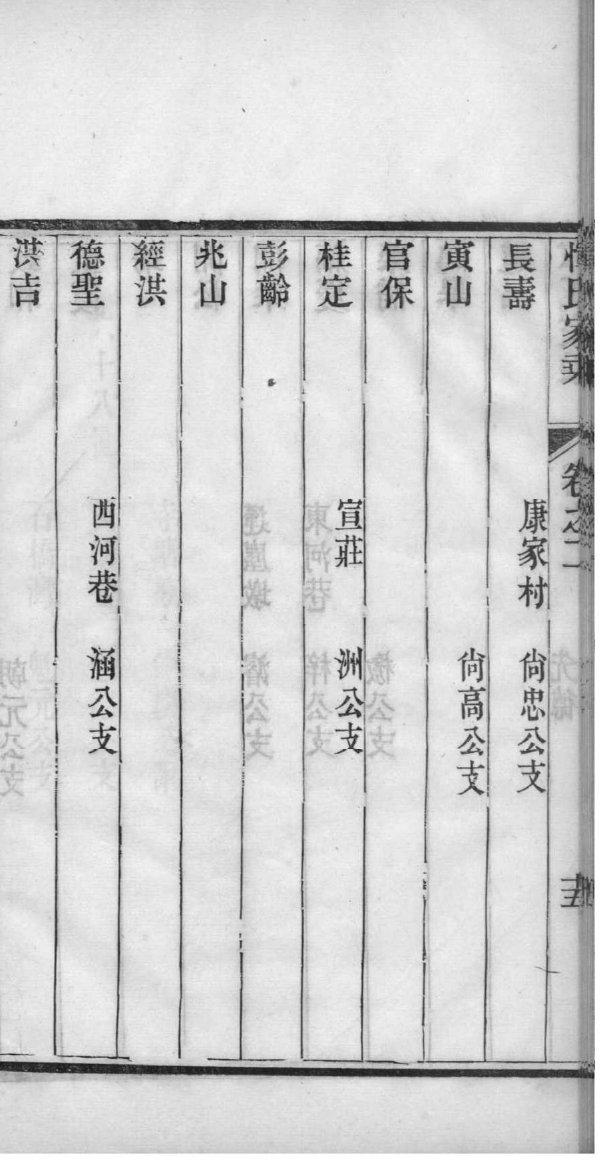 惲氏家乘 卷之二
長壽 康家村 尙忠公支
寅山 尙高公支
官保
桂定 宣莊 洲公支
彭齡
兆山
經洪
德聖 西河巷 涵公支
洪吉